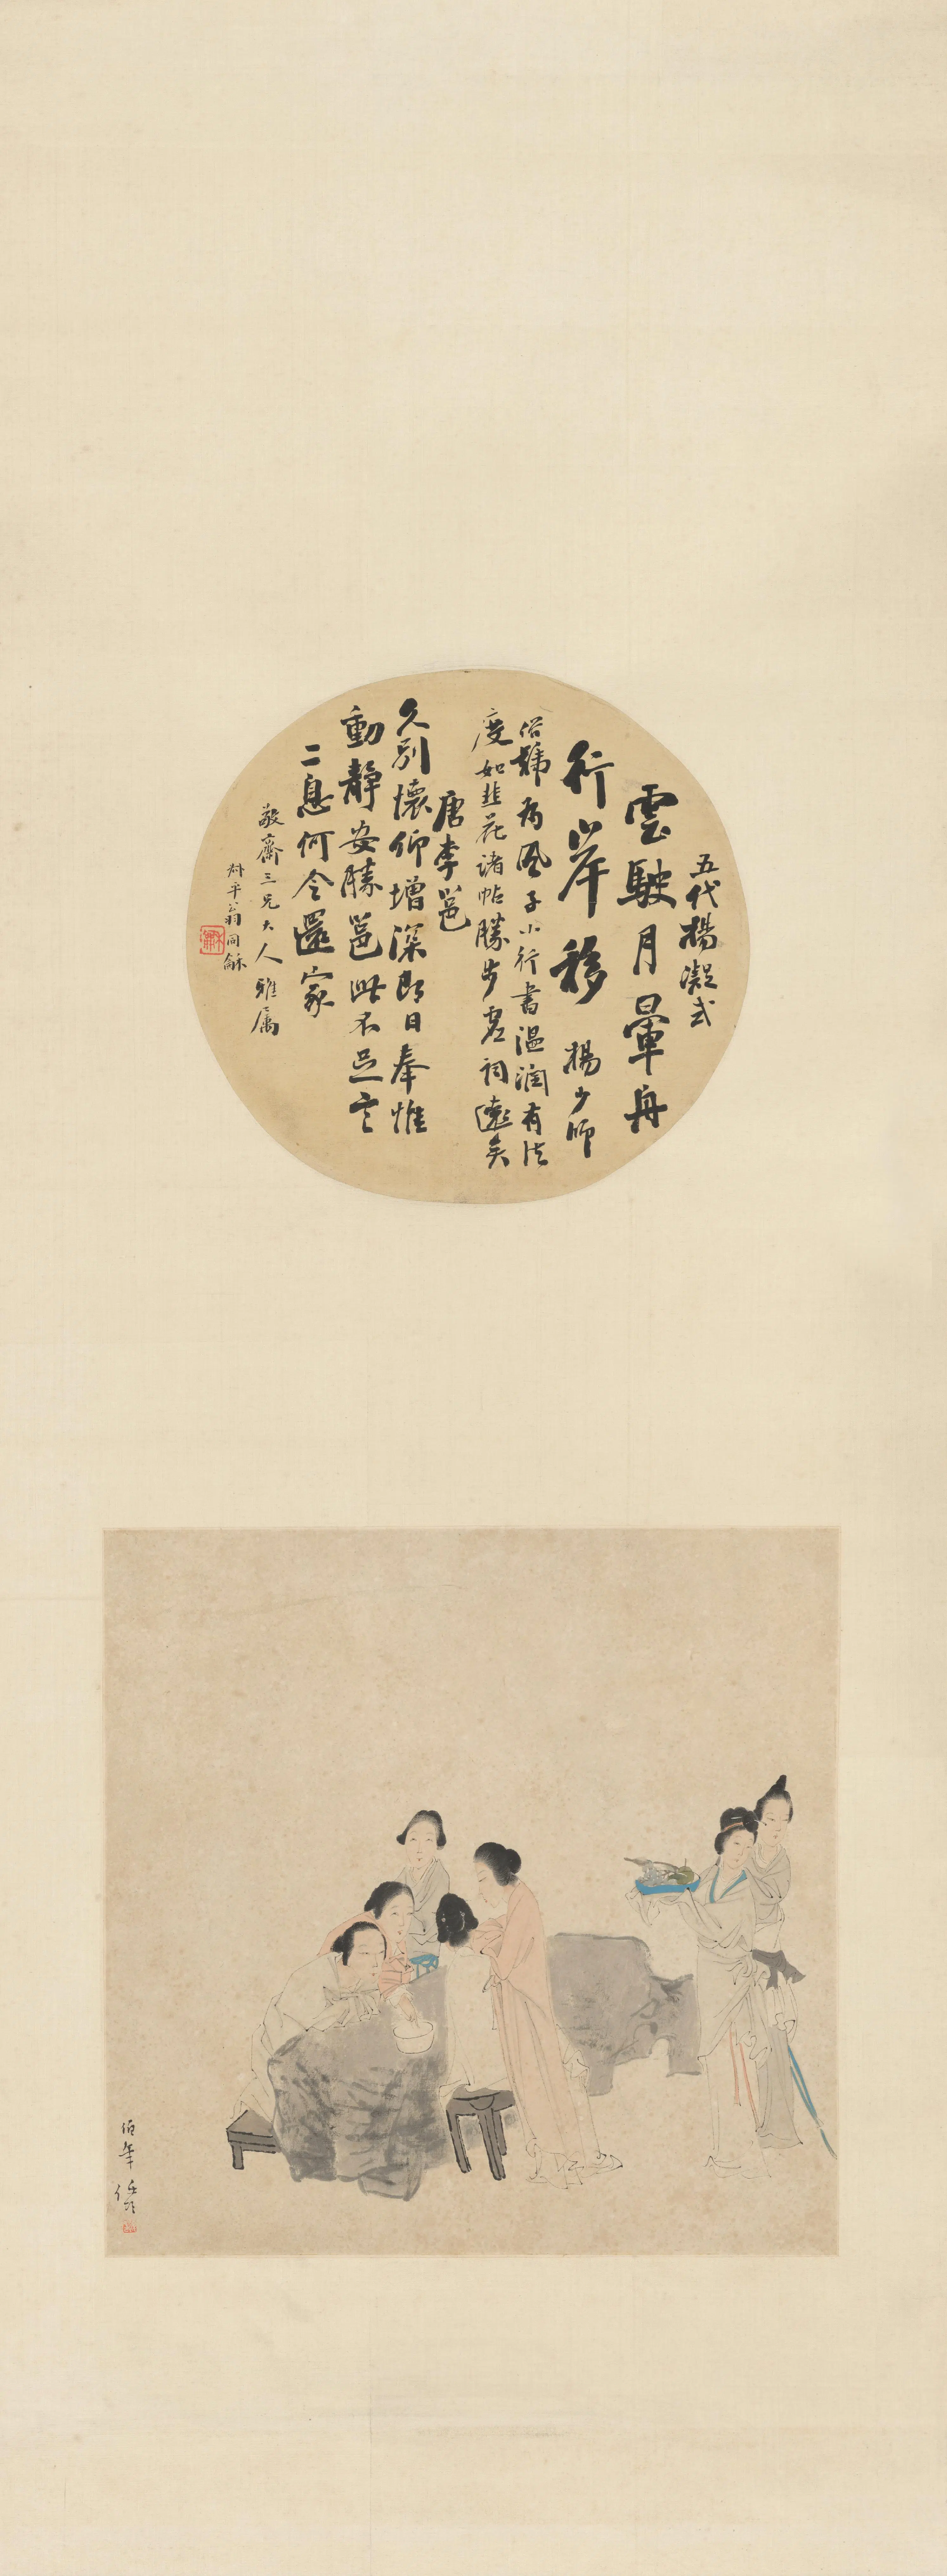 五代楊凝式
雲駛月暈舟
行岸移
楊少師
俗號為風子小行書溫潤有法
度如韭花諸帖勝步虛詞遠矣
唐李邕
久別懷仰增深即日奉惟
動靜安勝邕此不足言
二息何令還家
敬齋三兄大人雅屬
叔平翁同龢
伯年任頤